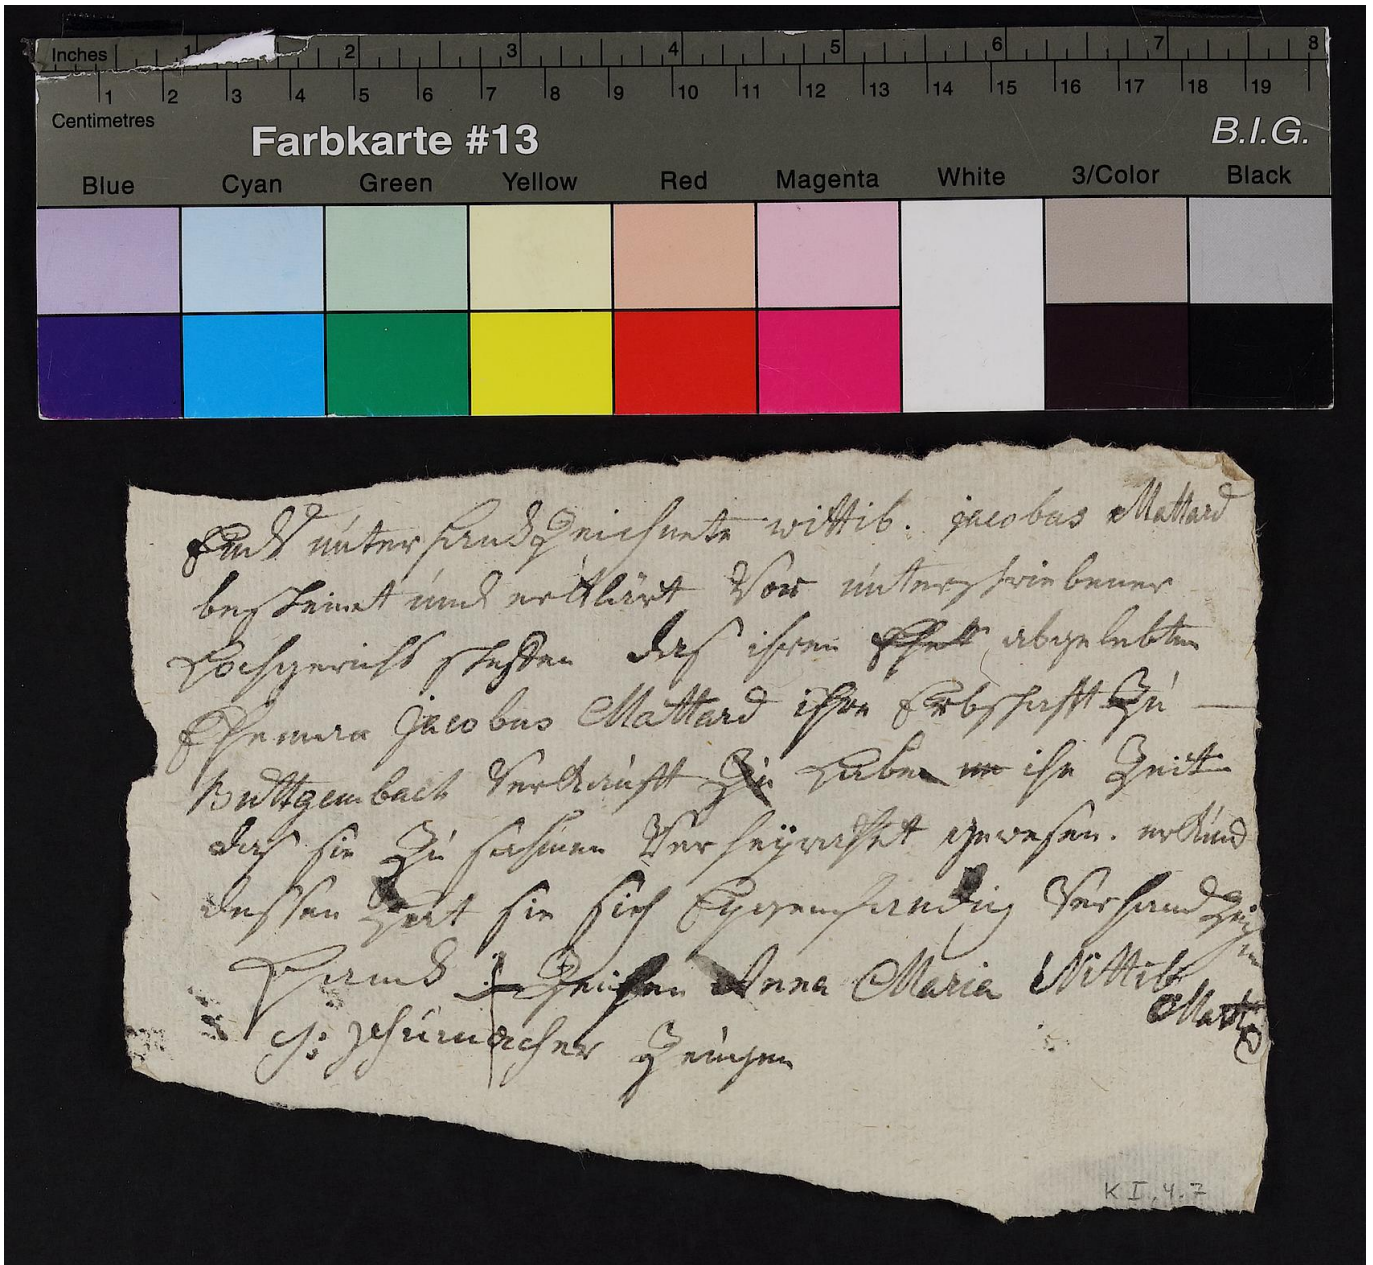 Inches 1 2 3 4 5 6 7 8
1 2 3 4 5 6 7 8 9 10 11 12 13 14 15 16 17 18 19
Centimetres
Farbkarte #13
B.I.G.
Blue Cyan Green Yellow Red Magenta White 3/Color Black
Endts unter handzeichnete wittib. jacobus Mattard
bescheint und erklärt Vor unterschriebener
hochgerichts das ihren abgelebten
Eheman jacobus Mattard ihre Erbschafft zu
Buttgembach Verkaufft zu haben ihr Zeit
das sie zu sahmen Verheÿrathet gewesen. urkund
dessen hat sie sich Eygenhandig Verhandzeichn
Hand Zeichen Anna Maria Wittib
Matt
schumacher Zeugen
K I, 4.7